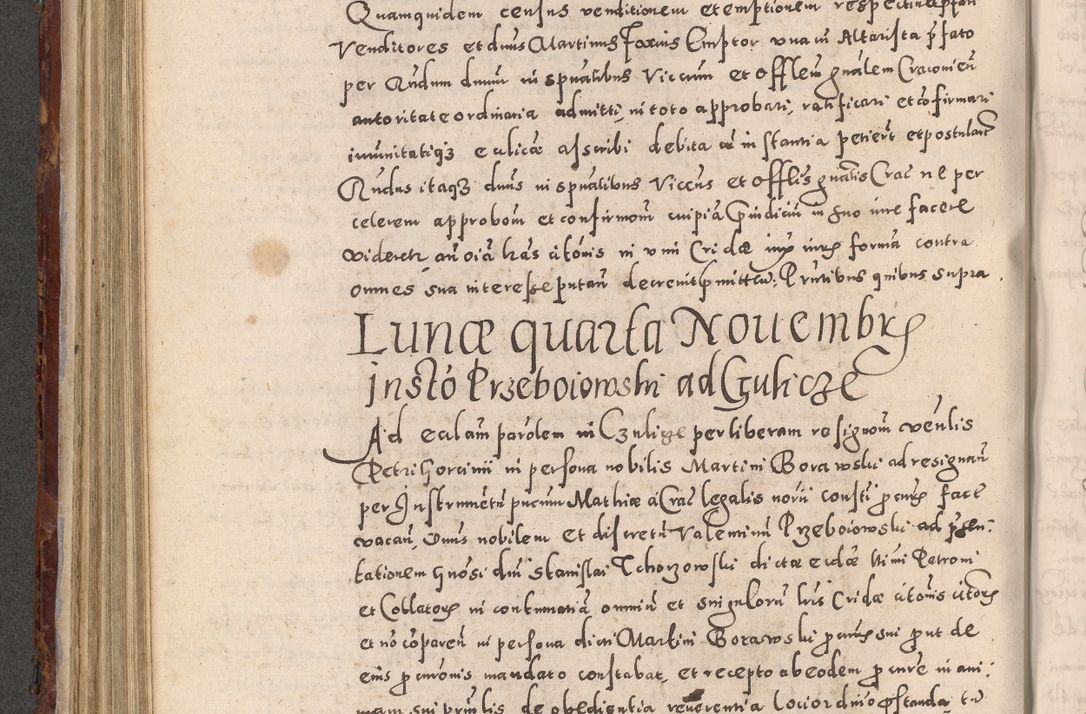 Quamquidem census venditionem et emptionem respective pfati
Venditores et dnus Martinus Foxius Emptor una cu Altarista pfato
per Rndum dnum in spualibus Vicrum et Offlem gnalem Cracovien
autoritate ordinaria admitti, in toto approbari, ratificari et cofirmari
imunitatiqz ecclicae ascribi debita cu instantia petiert et postulart
Rndus itaqz dnus in spualibus Viccus et Offlis gnalis Crac ne per
celerem approbom et confirmom cuipia Pjudiciu in suo iure facere
videretr, oia lras citonis in vim Cridae iux iuris forma contra
omnes sua interesse putan decrevit pmitten. Pntibus quibus supra.
Lunæ quarta Nouembrs
Insto Przeboiowski ad Czulicze
Ad ecclam parolem in Czulicze per liberam resignom venlis
Petri Gorcinii in persona nobilis Martini Borawski ad resignan
per Instrumetu pucum Mathiae a Crac legalis norii consti pcuris fact
vacan, Dnus nobilem et discretu Valentinu Przeboiowski ad psen:
tationem Gnosi dni Stanislai Tchorzowski dictae ecclae ltimi Patroni
et Collatoris in contumatia omniu et singuloru lris Cridae citonis citors
et no coparen in persona dicti Martini Borawski pcuris sui put de
eius pcuronis mandato constabat, et recepto ab eodem pcure in ani:
mam sui prinlis de obedientia reverentia loci ordinio pstanda, tu